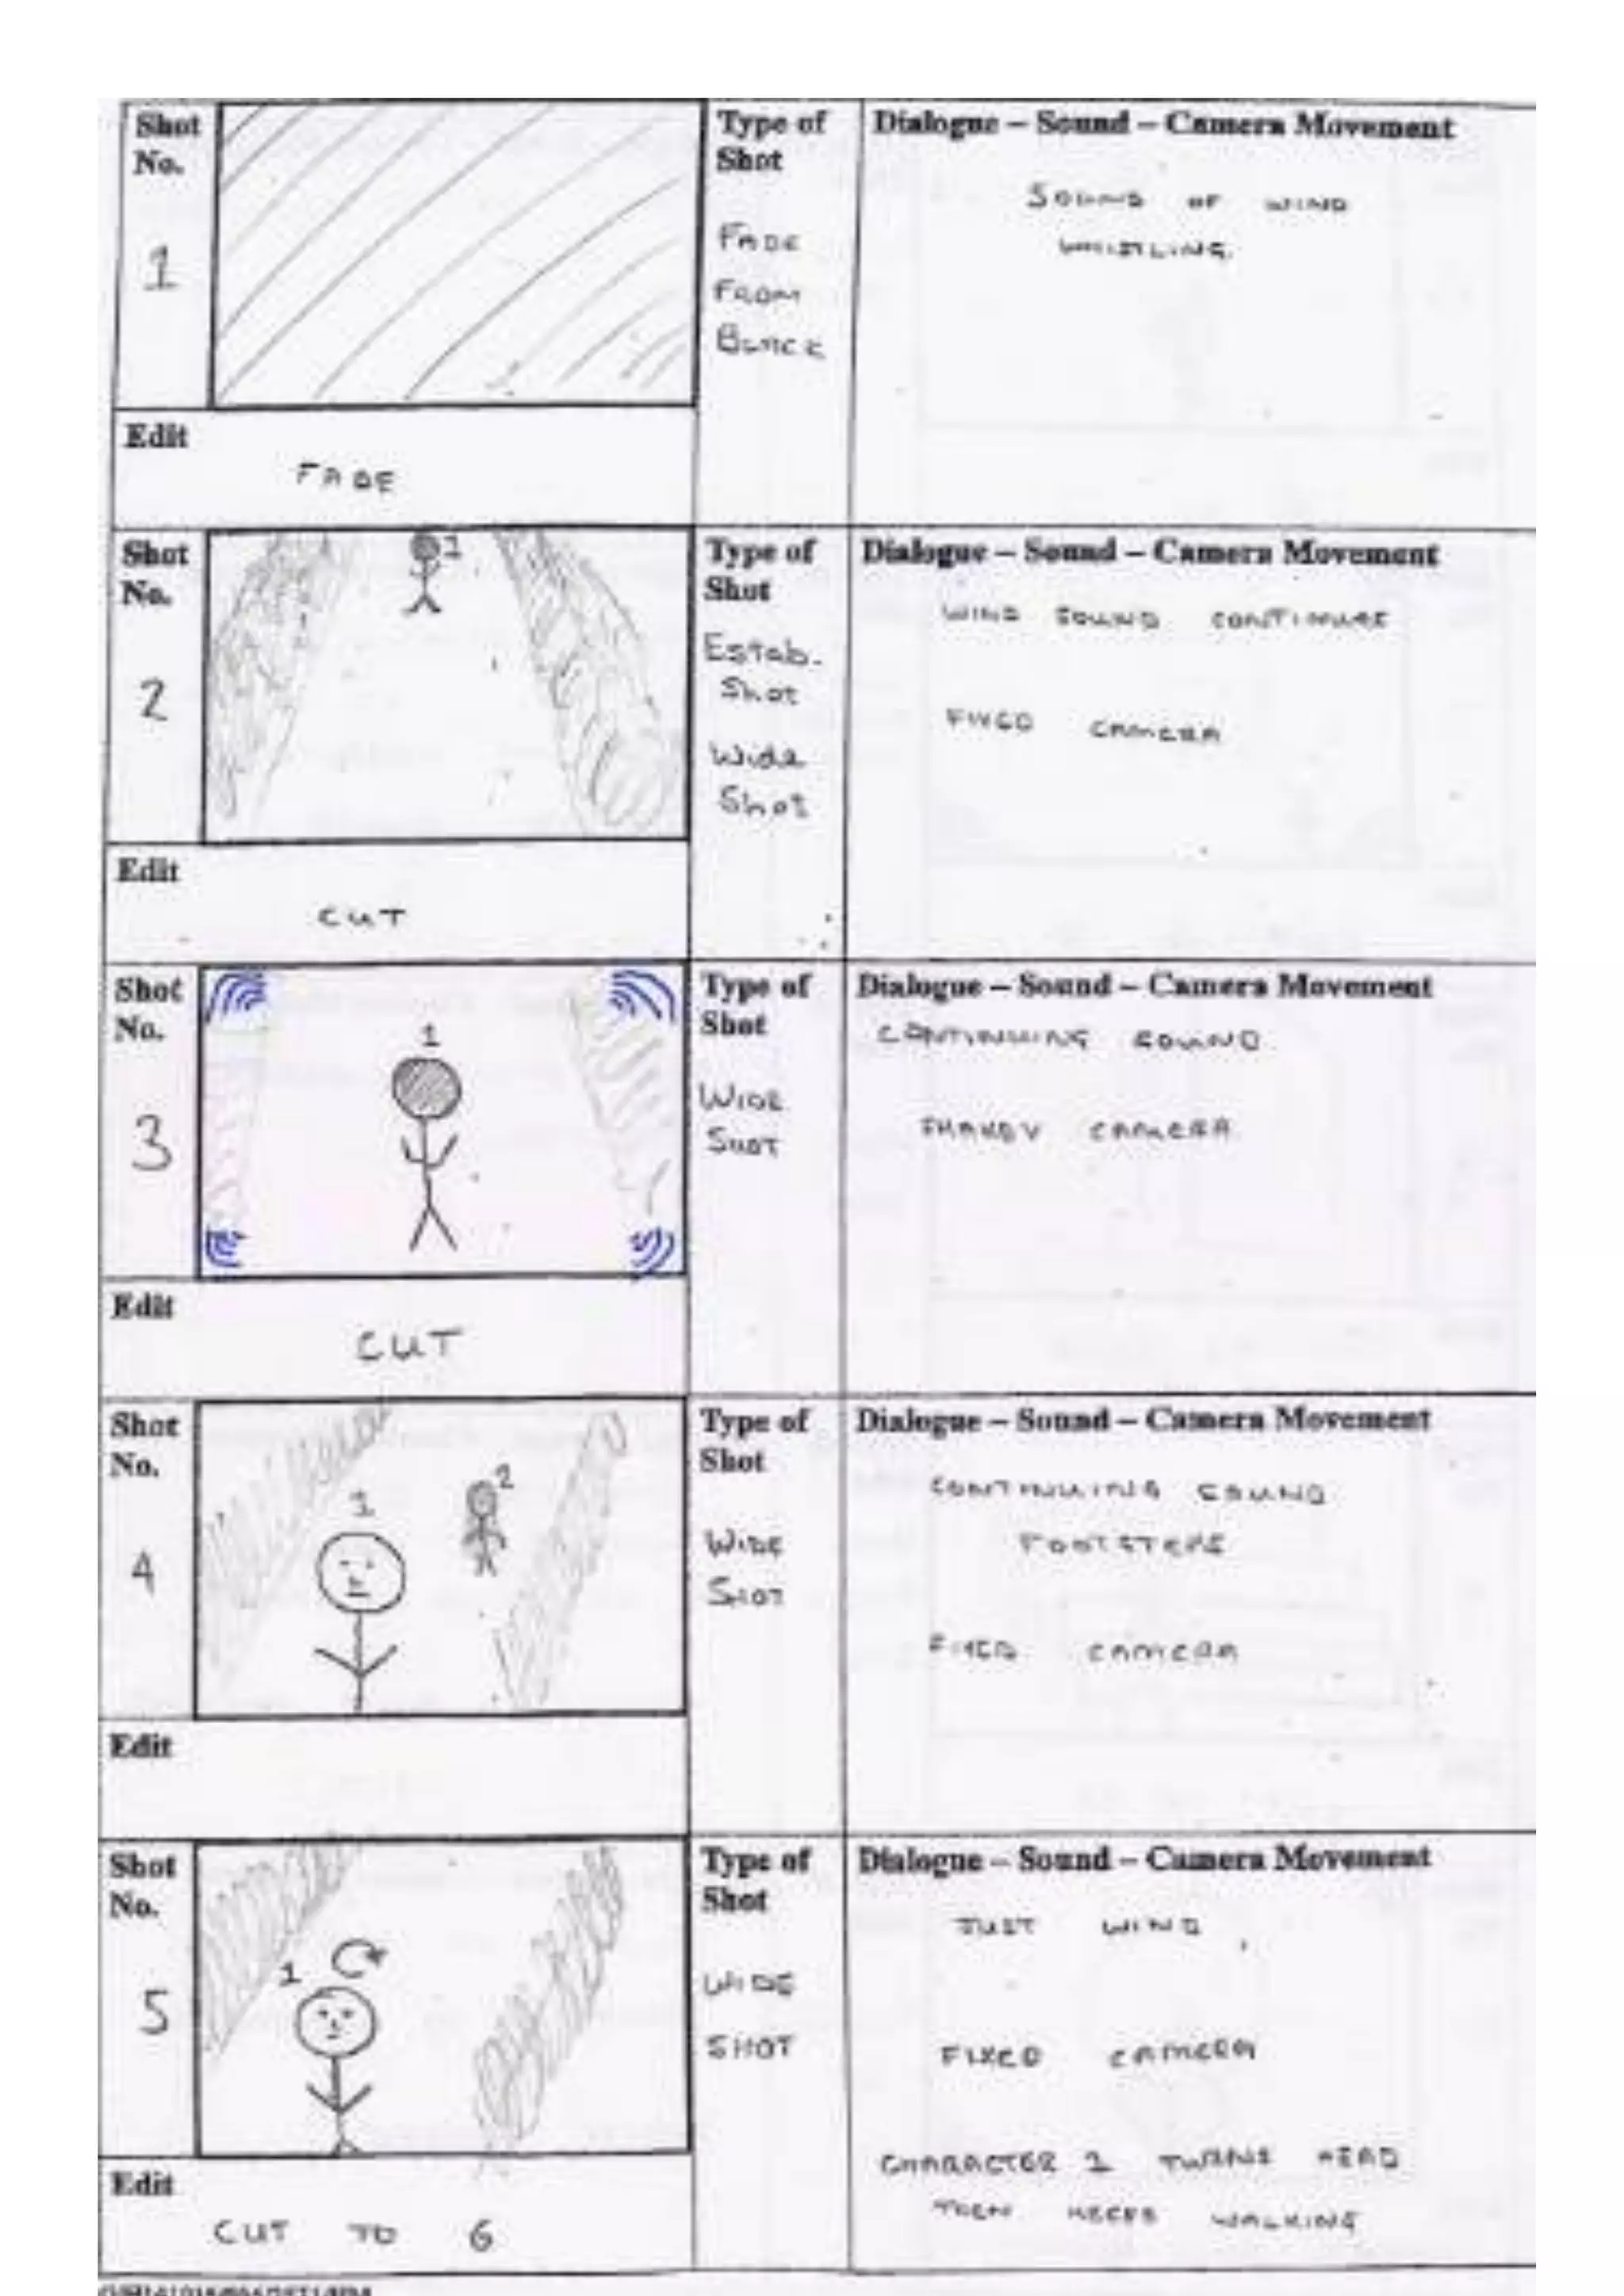 Shot
No.
1
Type of
Shot
FADE
FROM
BLACK
Dialogue – Sound – Camera Movement
SOUND OF WIND
WHISTLING.
Edit
FADE
Shot
No.
2
1
Type of
Shot
Estab.
Shot
Wide
Shot
Dialogue – Sound – Camera Movement
WIND SOUND CONTINUES
FIXED CAMERA
Edit
CUT
Shot
No.
3
1
Type of
Shot
WIDE
SHOT
Dialogue – Sound – Camera Movement
CONTINUING SOUND
SHAKEY CAMERA
Edit
CUT
Shot
No.
4
1
2
Type of
Shot
WIDE
SHOT
Dialogue – Sound – Camera Movement
CONTINUING SOUND
FOOTSTEPS
FIXED CAMERA
Edit
Shot
No.
5
1
Type of
Shot
WIDE
SHOT
Dialogue – Sound – Camera Movement
JUST WIND
FIXED CAMERA
CHARACTER 1 TURNS HEAD
THEN KEEPS WALKING
Edit
CUT TO 6